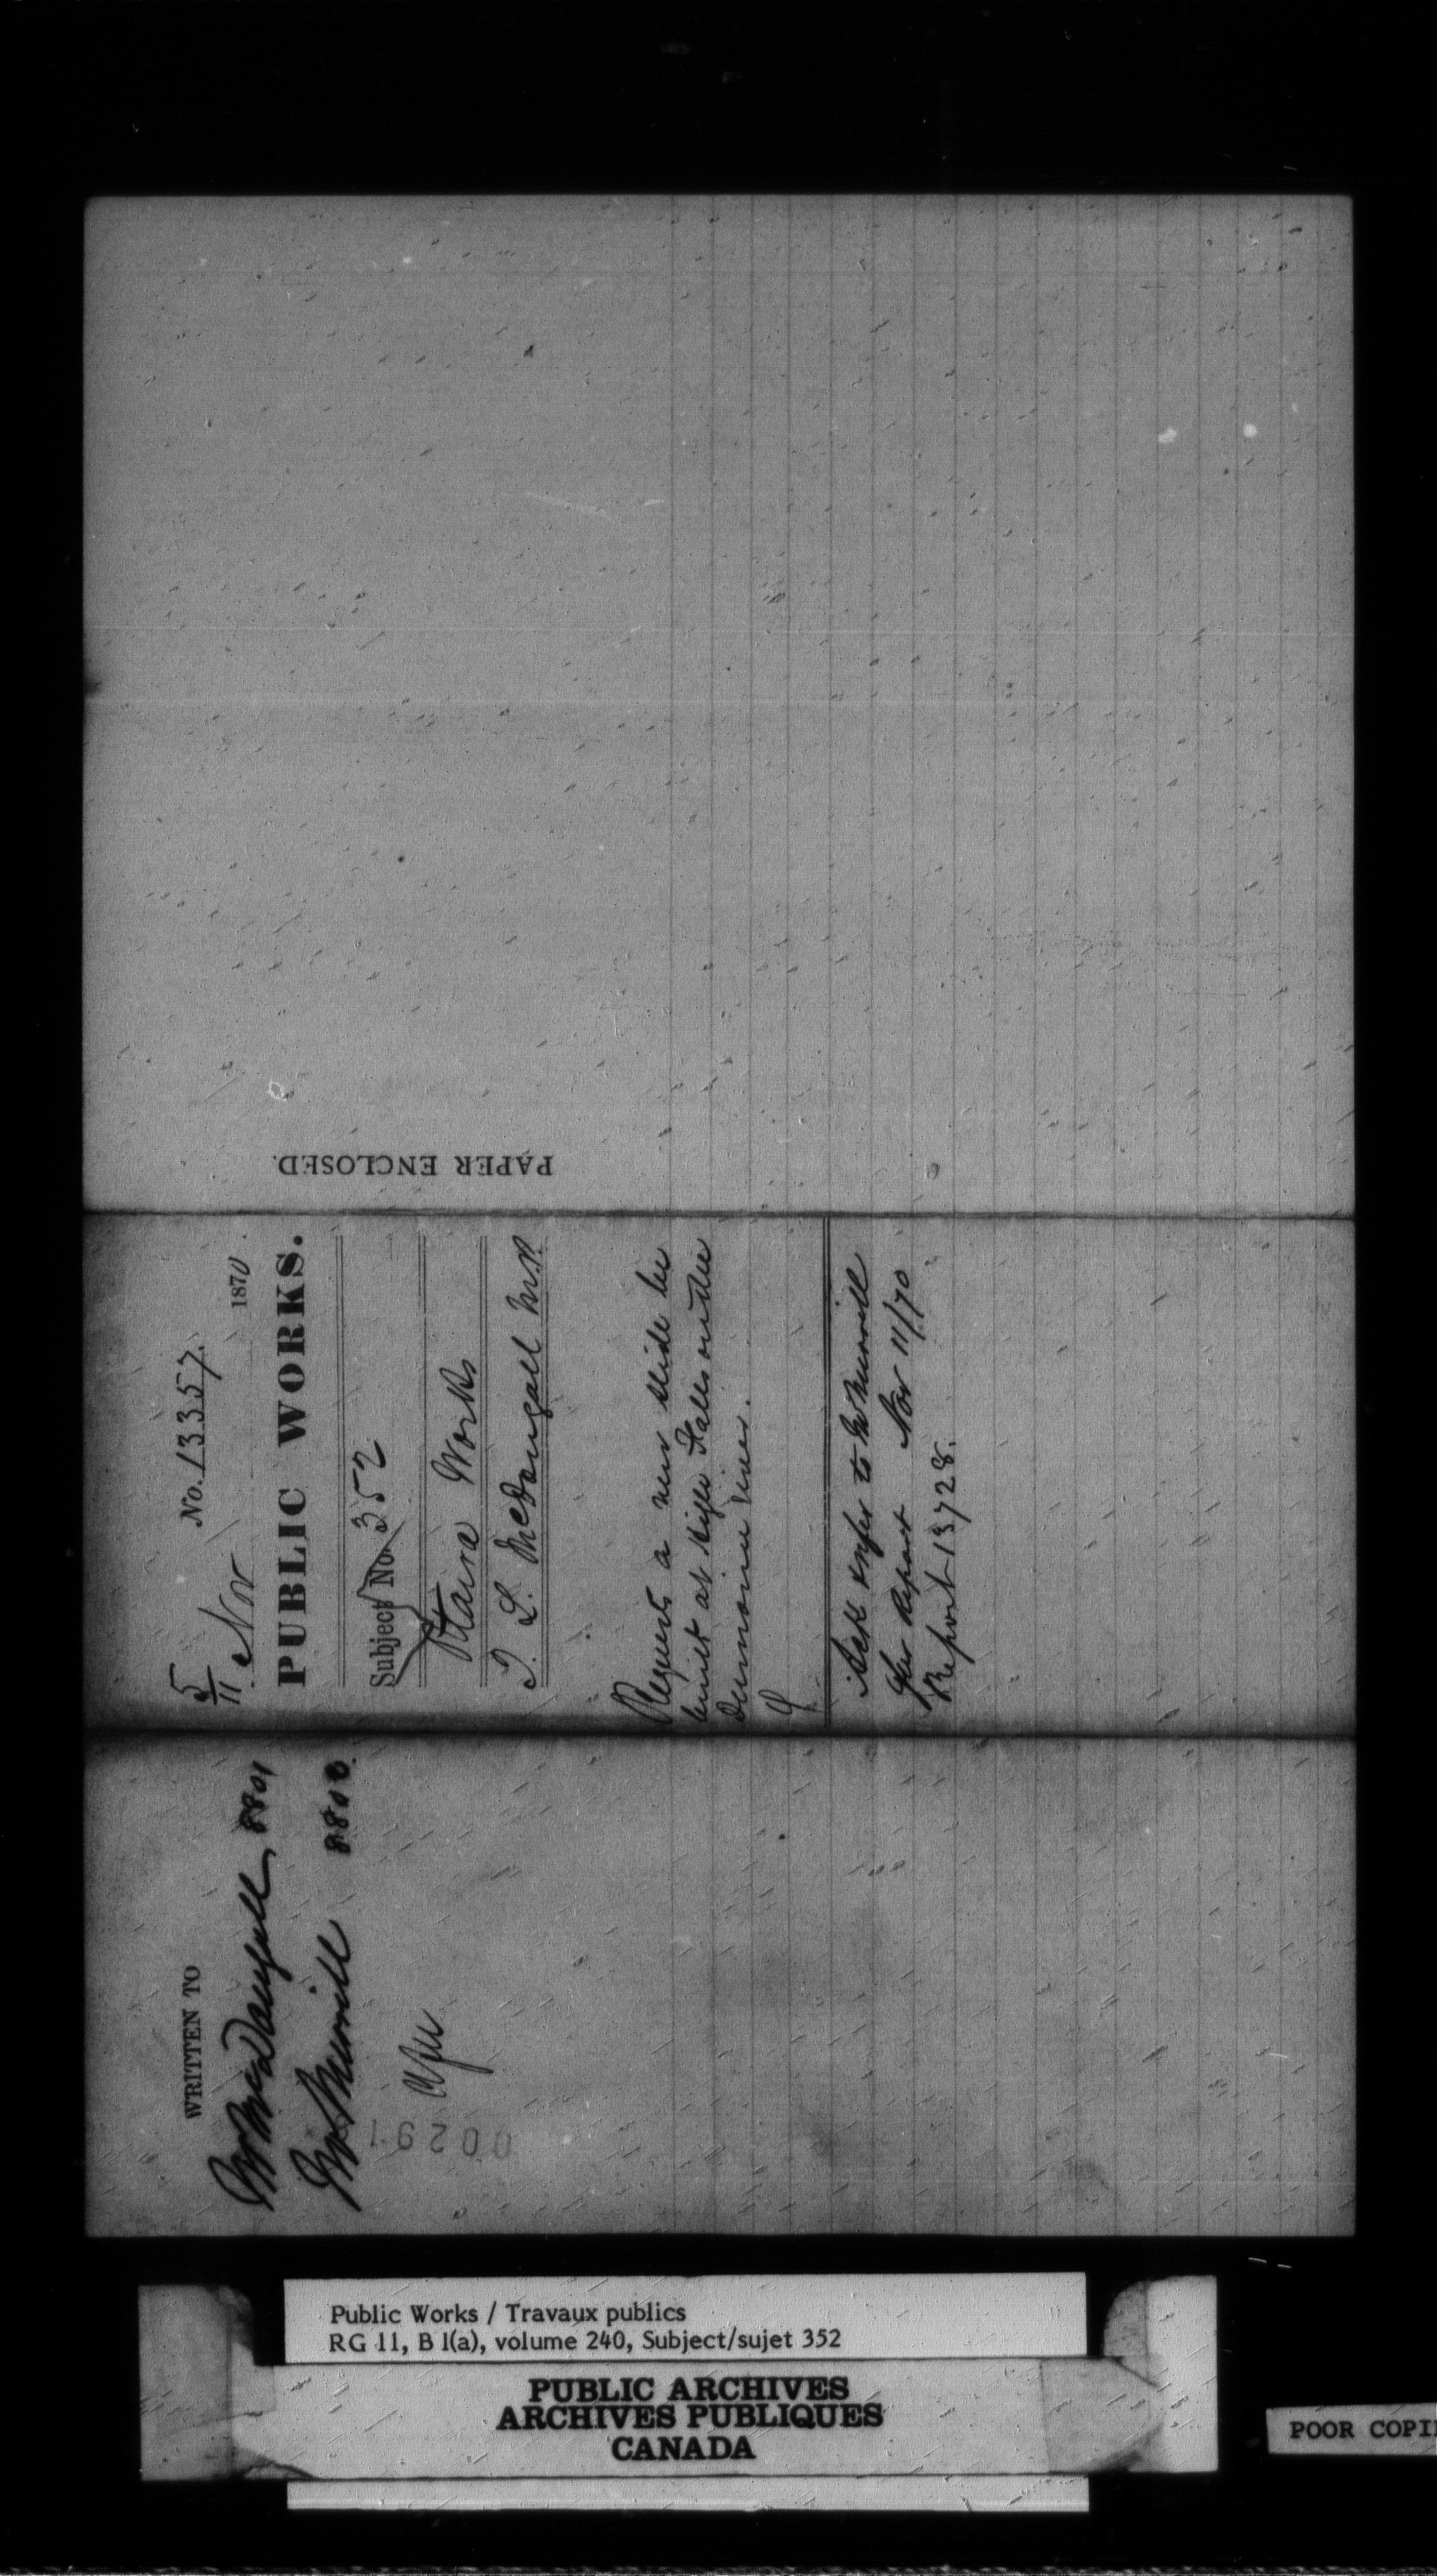 PAPER ENCLOSED.
5/11
No. 13357.
Nov 1870
PUBLIC WORKS.
Subject No. 352
Ottawa Works
L. McDougall M.P.
Requests a new slide be
built at High Falls on the
river.
Ack & refer to Mr Merrill
for Report Nov 11/70
Report 13728.
WRITTEN TO
Mr McDougall 8801
Mr Merrill 8800
00291
Public Works / Travaux publics
RG 11, B 1(a), volume 240, Subject/sujet 352
PUBLIC ARCHIVES
ARCHIVES PUBLIQUES
CANADA
POOR COPI